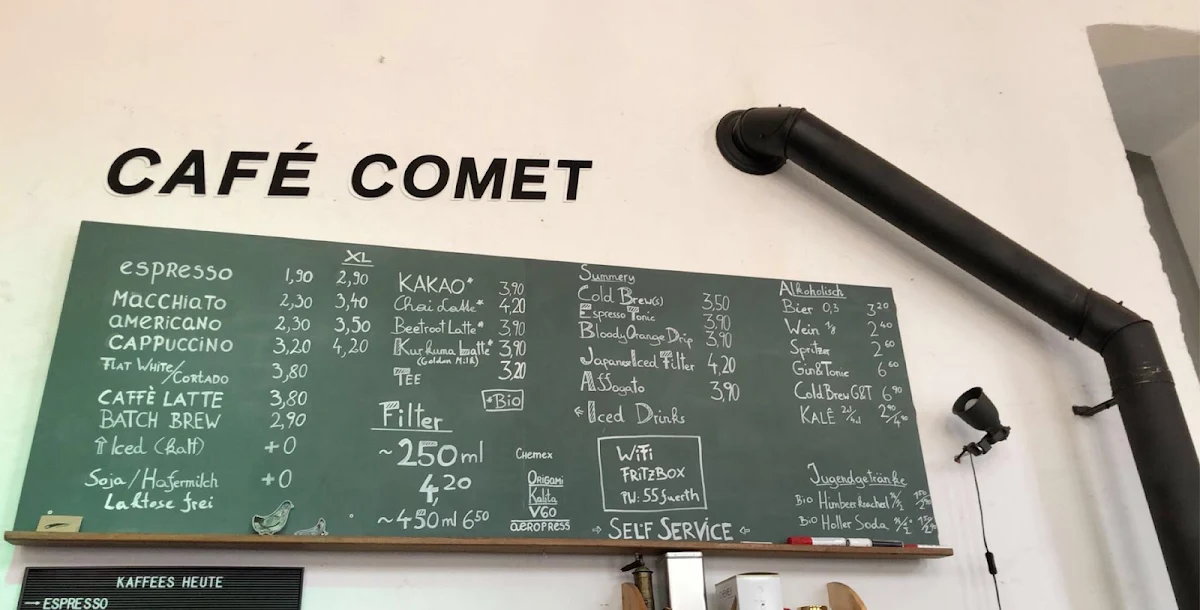 CAFÉ COMET
XL
espresso 1,90 2,90
MACCHIATO 2,30 3,40
AMERICANO 2,30 3,50
CAPPUCCINO 3,20 4,20
FLAT WHITE/CORTADO 3,80
CAFFÈ LATTE 3,80
BATCH BREW 2,90
⇑ Iced (kalt) +0
Soja/Hafermilch +0
Laktose frei
KAKAO* 3,90
Chai Latte* 4,20
Beetroot Latte* 3,90
Kurkuma Latte* 3,90
(Golden Milk)
TEE 3,20
*Bio
Filter
~250ml
4,20
~450ml 6 50
Chemex
ORIGAMI
Kalita
V60
aeropress
Summery
Cold Brew(s) 3,50
Espresso Tonic 3,90
Bloody Orange Drip 3,90
Japanese Iced Filter 4,20
Affogato 3,90
← Iced Drinks
WiFi
FRITZBOX
PW: 55 fuerth
⇒ SELF SERVICE ⇐
Alkoholisch
Bier 0,5 3 20
Wein 1/8 2 40
Spritzer 2 60
Gin&Tonic 6 60
Cold Brew G&T 6 90
KALĒ
Jugendgetränke
Bio Himbeerkracherl
Bio Holler Soda
KAFFEES HEUTE
→ESPRESSO